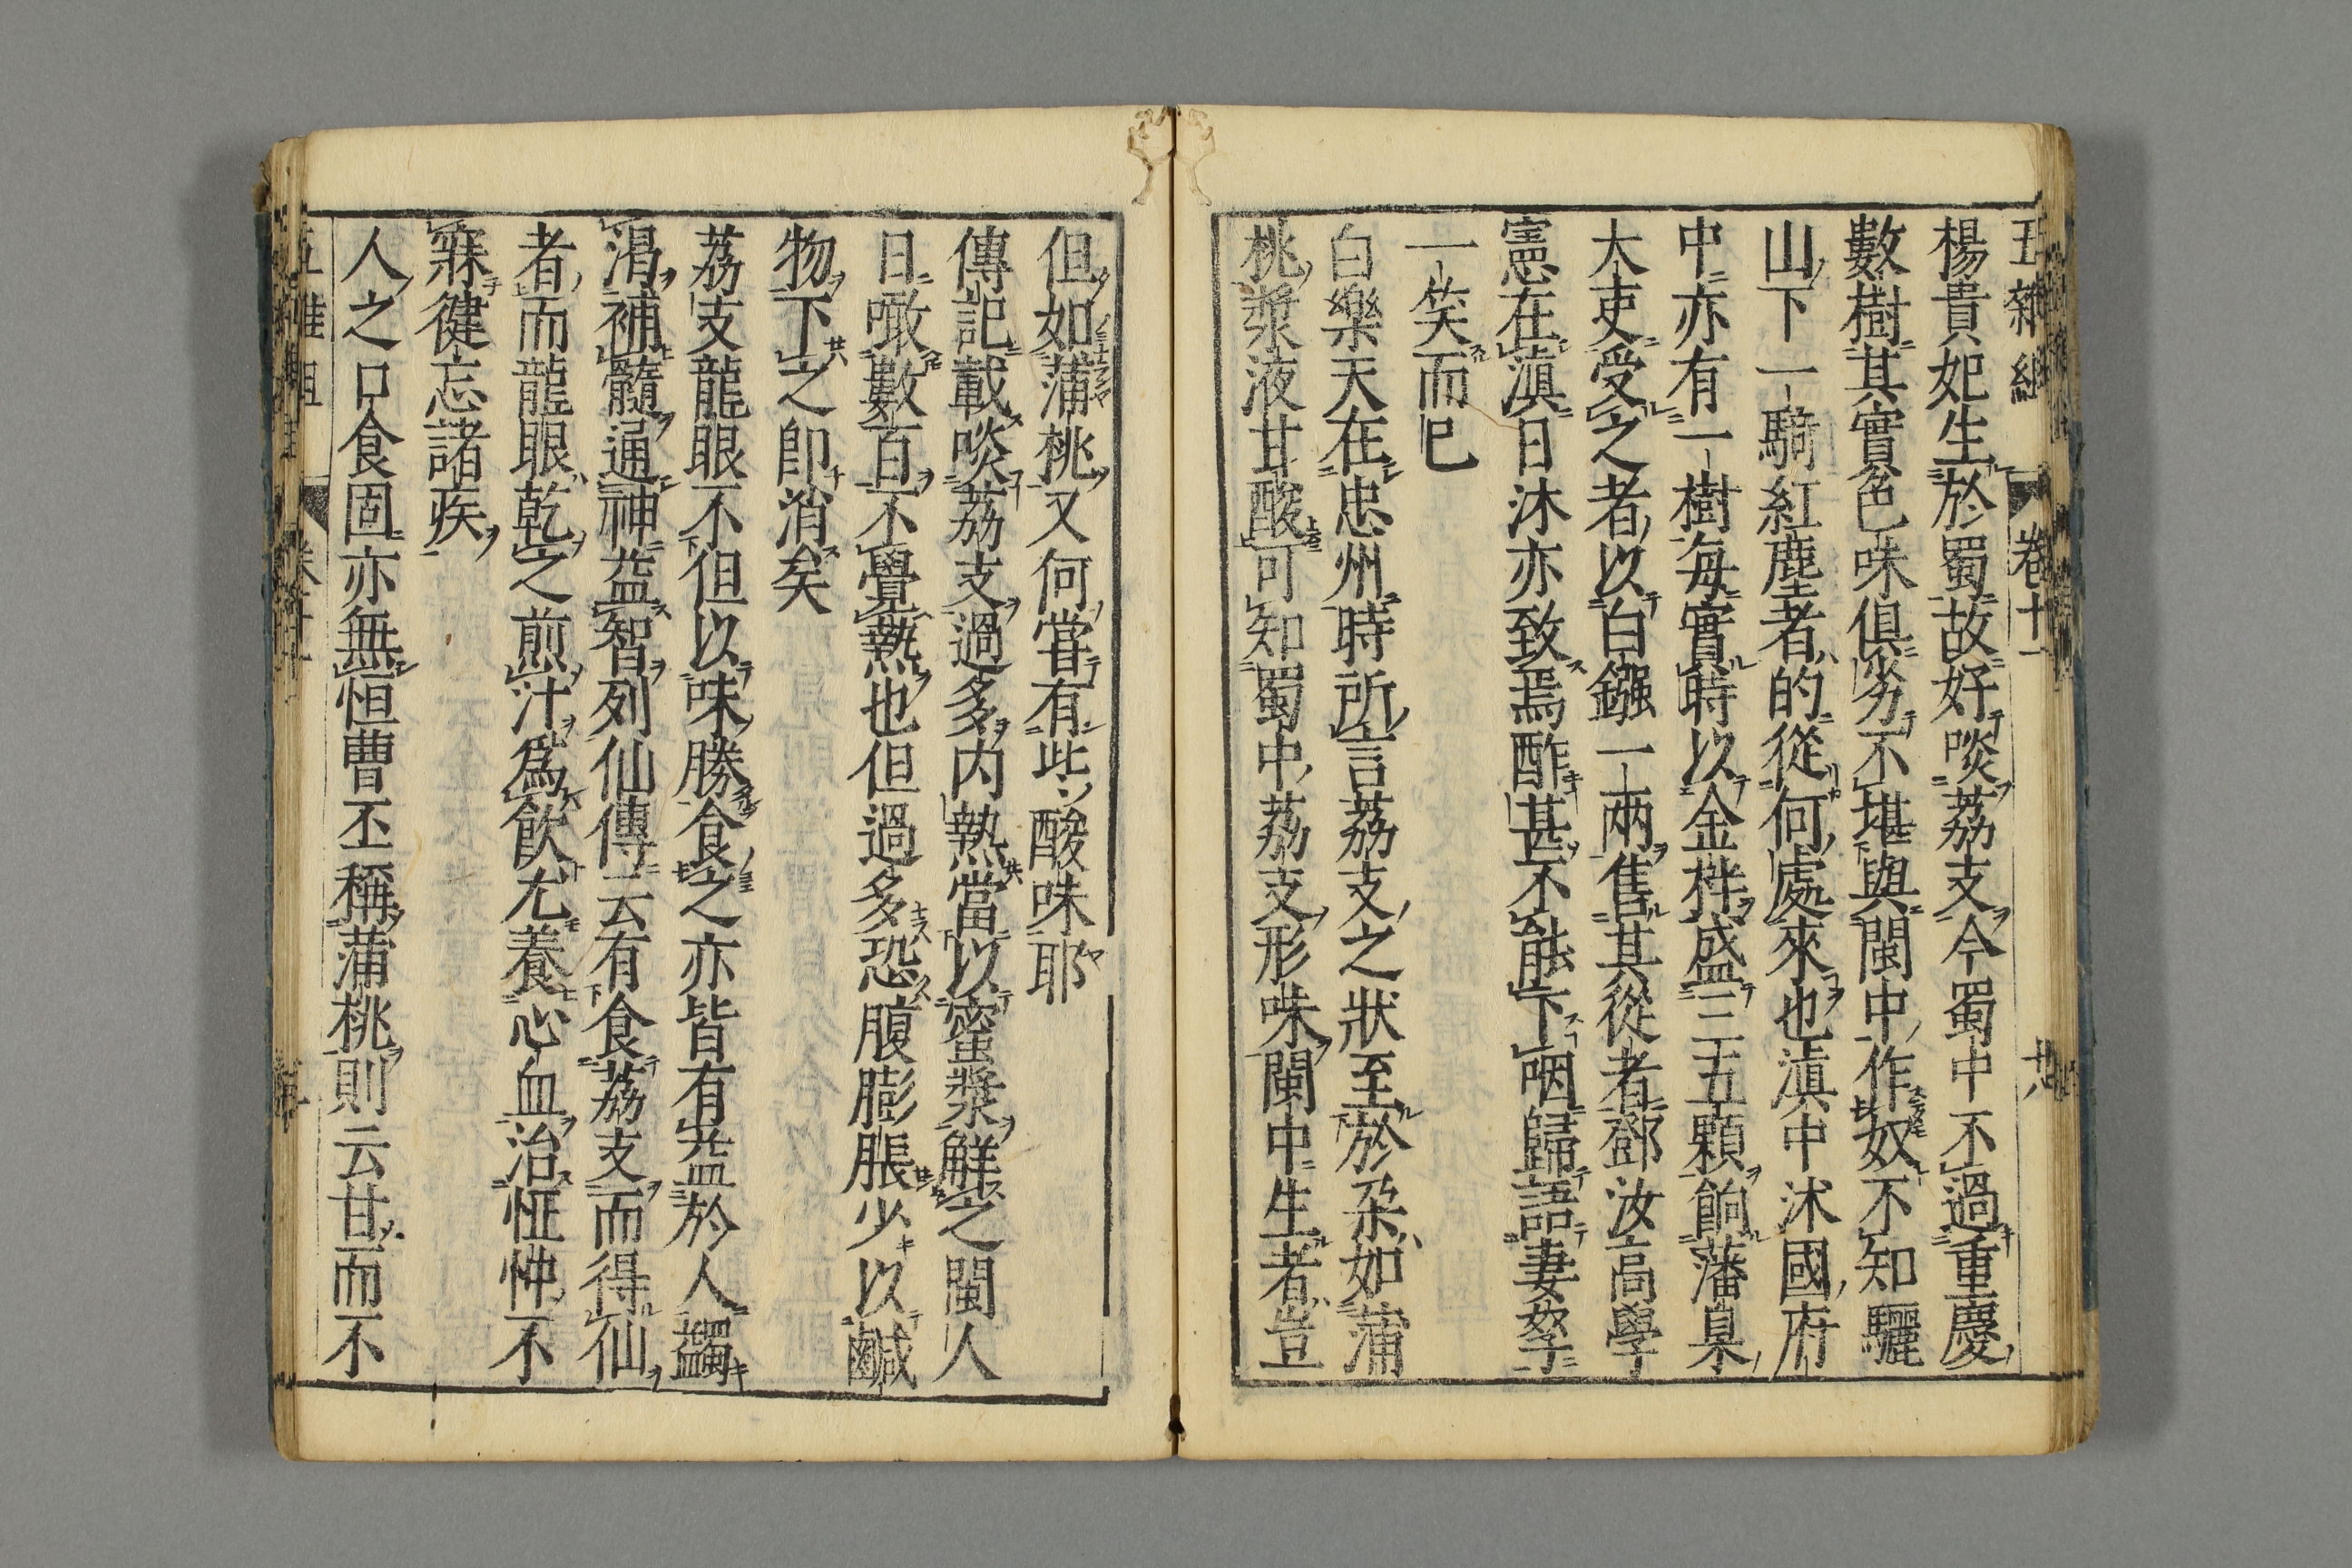 五雜組 卷十一 廿八
楊貴妃生於蜀故好啖荔支今蜀中不過重慶
數樹其實色味俱劣不堪與閩中作奴不知驪
山下一騎紅塵者的從何處來也滇中沐國府
中亦有一樹每實時以金柈盛三五顆餉藩臬
大吏受之者以白鏹一兩售其從者鄧汝高學
憲在滇日沐亦致焉酢甚不能下咽歸語妻孥
一笑而已
白樂天在忠州時所言荔支之狀至於朵如蒲
桃漿液甘酸可知蜀中荔支形味閩中生者豈
但如蒲桃又何嘗有些酸味耶
傳記載啖荔支過多内熱當以蜜漿解之閩人
日噉數百不覺熱也但過多恐腹膨脹少以鹹
物下之卽消矣
荔支龍眼不但以味勝食之亦皆有益於人蠲
渴補髓通神益智列仙傳云有食荔支而得仙
者而龍眼乾之煎汁爲飲尤養心血治怔忡不
寐健忘諸疾
人之口食固亦無恒曹丕稱蒲桃則云甘而不